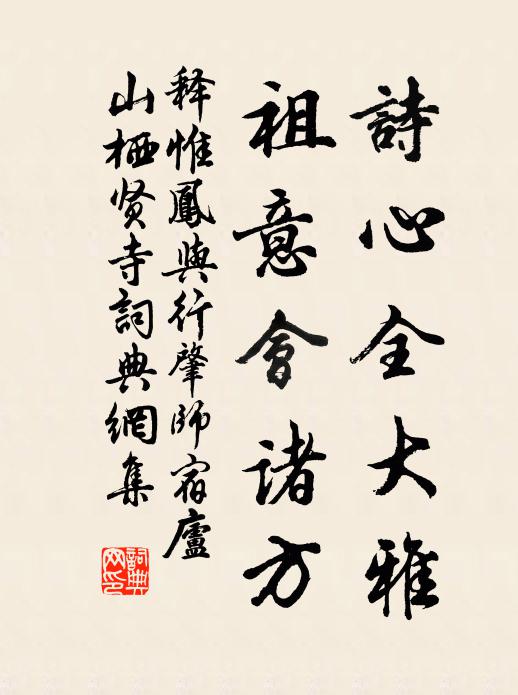 詩心全大雅
祖意會诸方
释惟鳳與行肇師宿廬
山栖贤寺詞典網集
詞典网印